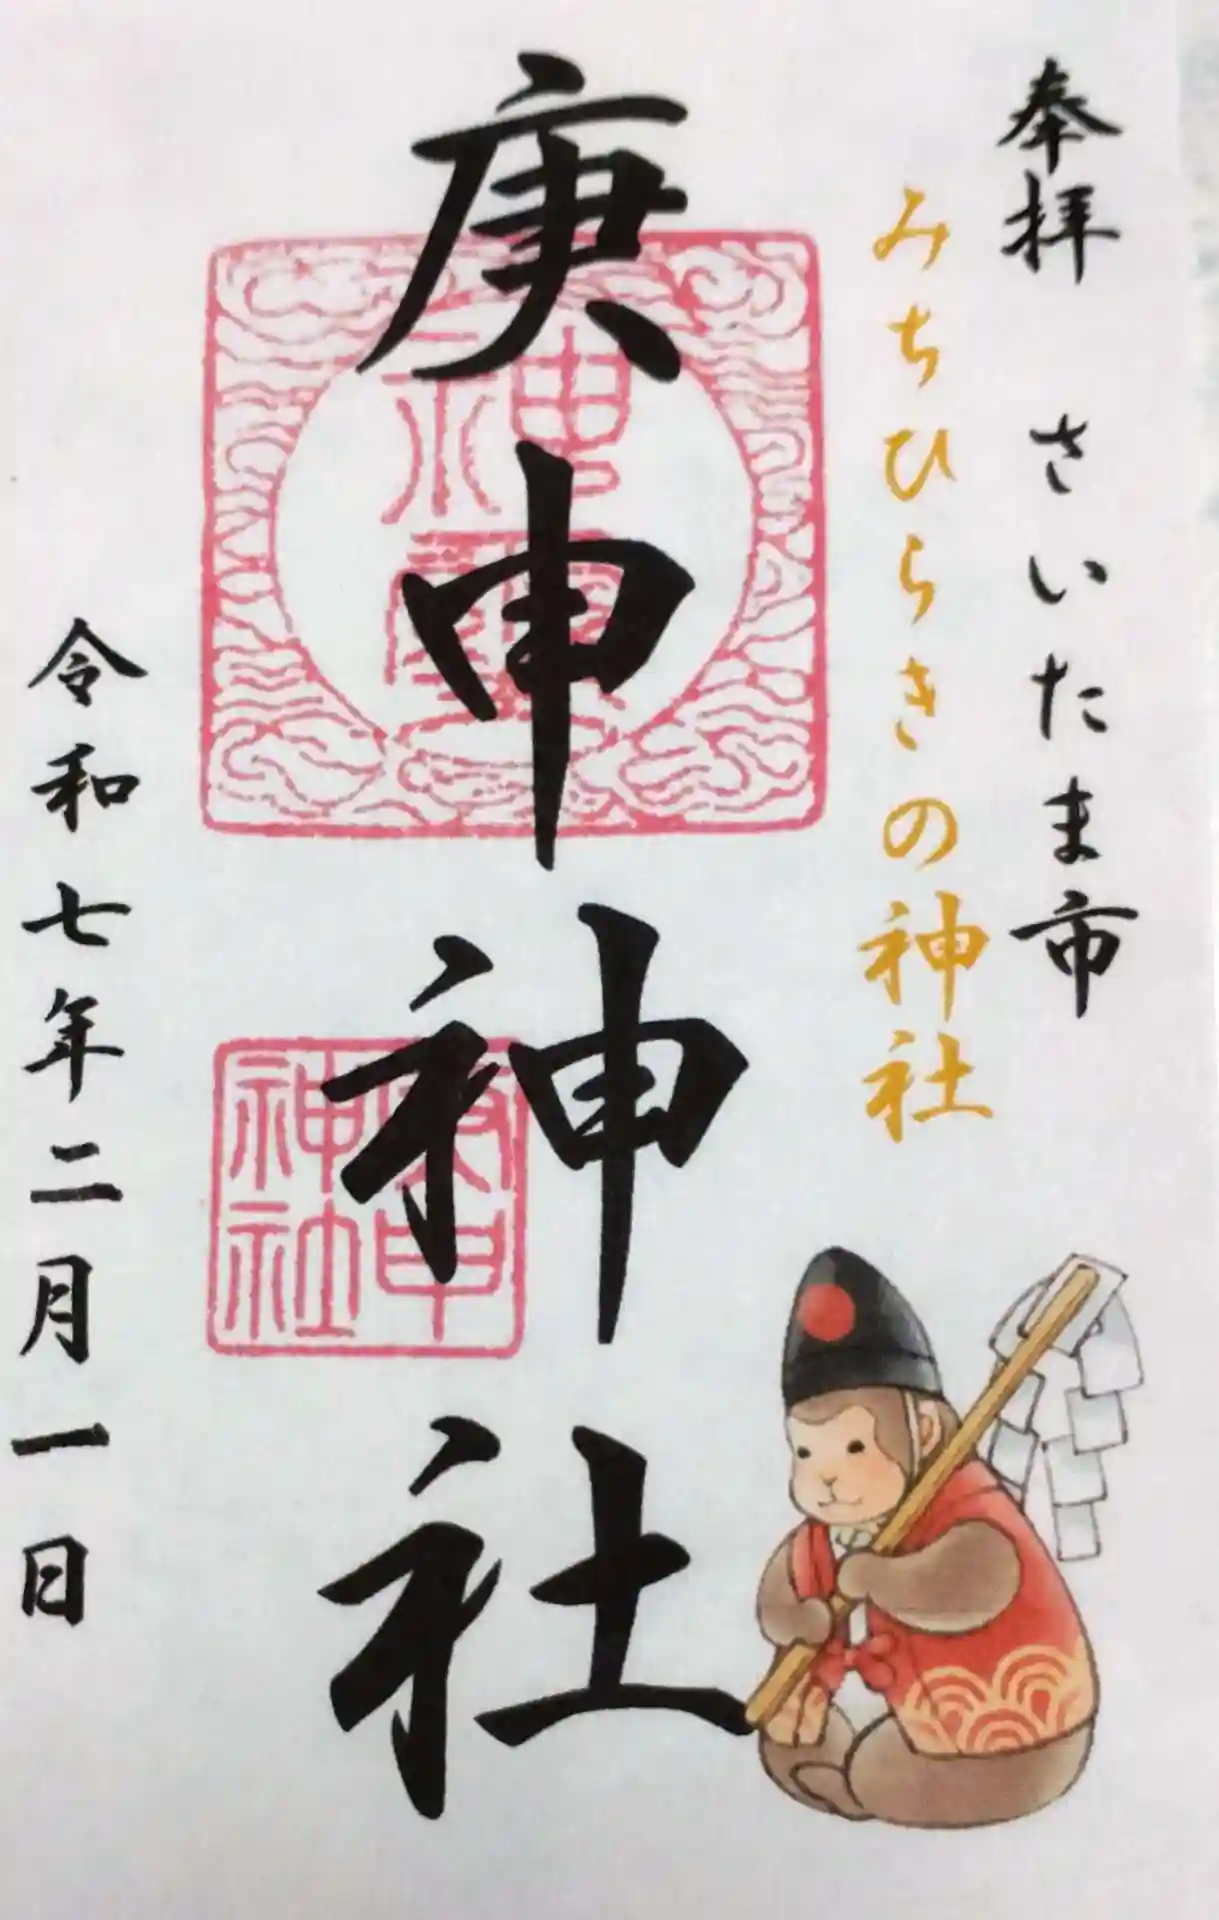 奉拝 さいたま市
みちひらきの神社
庚申神社
庚申
神社
令和七年二月一日